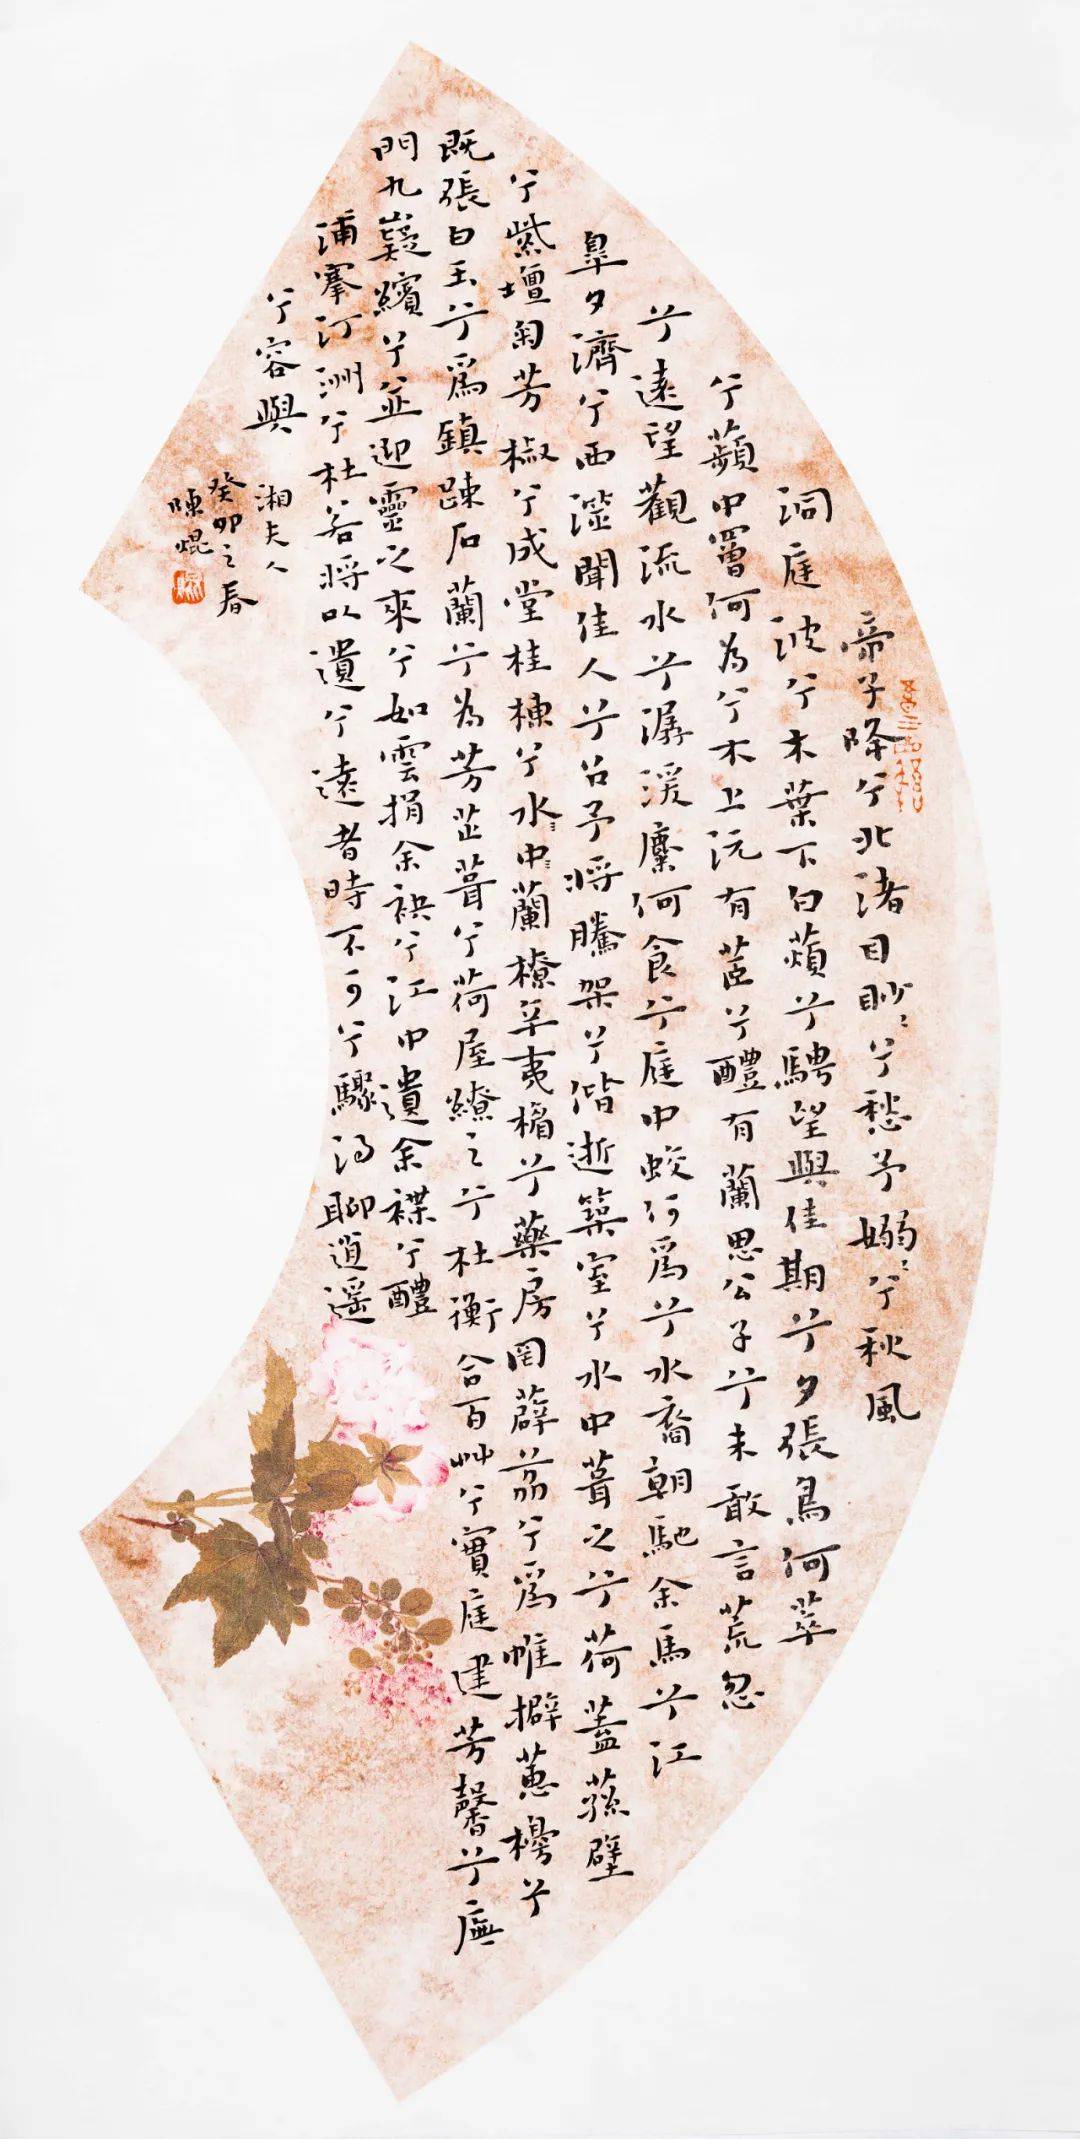 帝子降兮北渚目眇〻兮愁予嫋〻兮秋風
洞庭波兮木葉下白薠兮騁望與佳期兮夕張鳥何萃
兮蘋中罾何為兮木上沅有茝兮醴有蘭思公子兮未敢言荒忽
兮遠望觀流水兮潺湲麋何食兮庭中蛟何爲兮水裔朝馳余馬兮江
皋夕濟兮西澨聞佳人兮召予將騰架兮偕逝築室兮水中葺之兮荷蓋蓀壁
兮紫壇匊芳椒兮成堂桂棟兮水〻中〻蘭橑辛夷楣兮藥房罔薜荔兮爲帷擗蕙櫋兮
既張白玉兮爲鎮踈石蘭兮為芳芷葺兮荷屋繚之兮杜衡合百艸兮實庭建芳馨兮廡
門九嶷繽兮並迎靈之來兮如雲捐余袂兮江中遺余褋兮醴
浦搴汀洲兮杜若將以遺兮遠者時不可兮驟得聊逍遥
兮容與
湘夫人
癸卯之春
陳焜